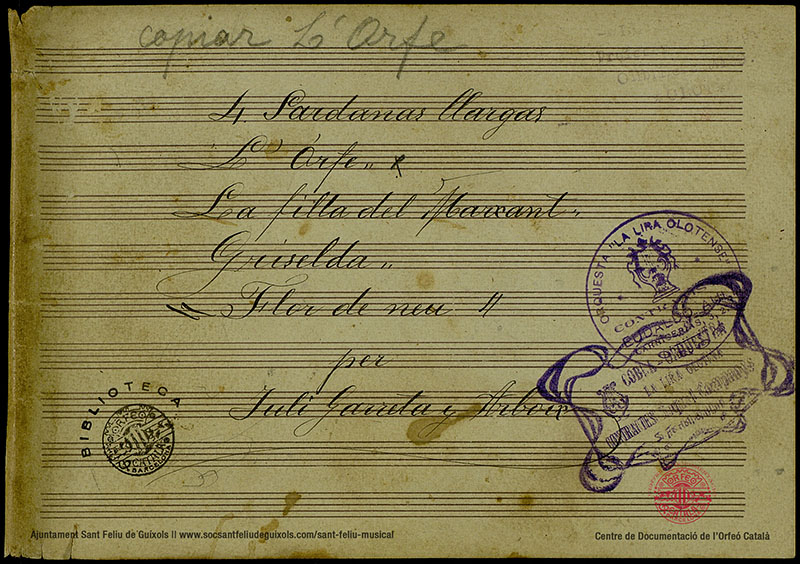 copiar L'Orfe
4 Sardanas llargas
L'Orfe„ x
La filla del Marxant„
Griselda„
„ Flor de neu „
per
Juli Garreta y Arboix
ORQUESTA "LA LIRA OLOTENSE"
COBLA-ORQUESTA
LA LIRA
BIBLIOTECA
ORFEÓ CATALÀ
BARCELONA
ORFEÓ CATALÀ
Ajuntament Sant Feliu de Guíxols II www.socsantfeliudeguixols.com/sant-feliu-musical
Centre de Documentació de l'Orfeó Català